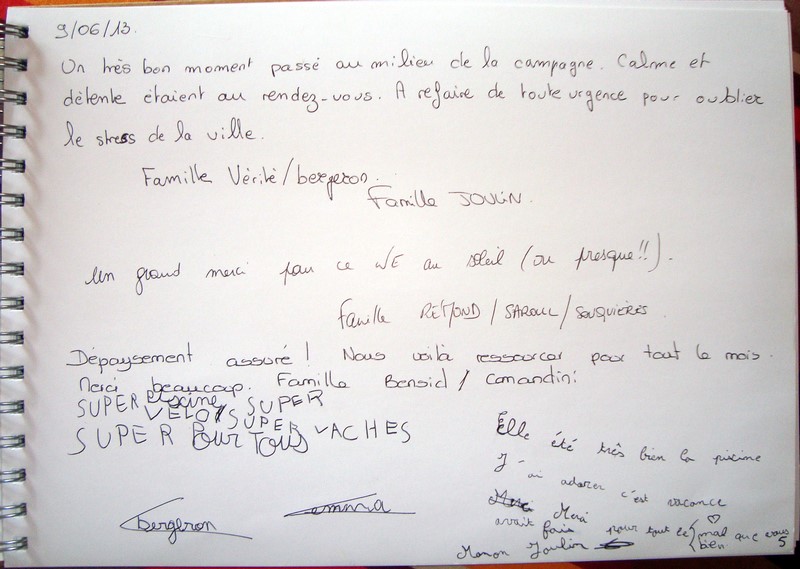 9/06/13.
Un très bon moment passé au milieu de la campagne. Calme et
détente étaient au rendez-vous. A refaire de toute urgence pour oublier
le stress de la ville.
Famille Vérité/bergeron.
Famille JOULIN.
Un grand merci pour ce WE au soleil (ou presque!!).
Famille REYMOND / SAROUL / SOUSQUIÈRES
Dépaysement assuré! Nous voilà ressourcer pour tout le mois.
Merci beaucoup. Famille Bensid / Comandini
SUPER piscine, SUPER
VELO, SUPER VACHES
SUPER Pour Tous
bergeron
emma
Elle été très bien la piscine
J-ai adorer c'est vacance
Merci pour tout le mal que vous
avait fais bien
Manon Joulin